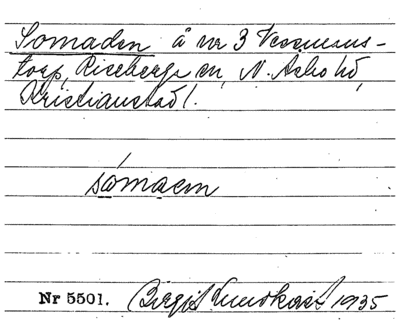 Somaden å nr 3 Vessmans-
torp, Riseberga sn, N. Åsbo hd,
Kristianstad l.
sómaen
Nr 5501. Birgit Lundkvist 1935